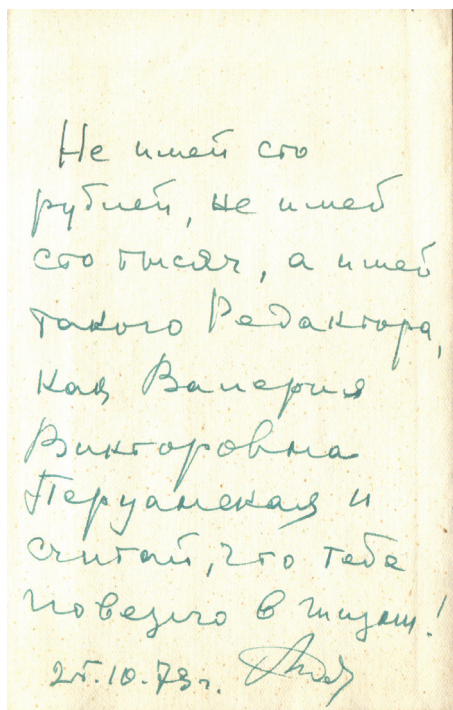 Не имей сто
рублей, не имей
сто тысяч, а имей
такого Редактора,
как Валерия
Викторовна
Перуанская и
считай, что тебе
повезло в жизни!
25.10.79г.